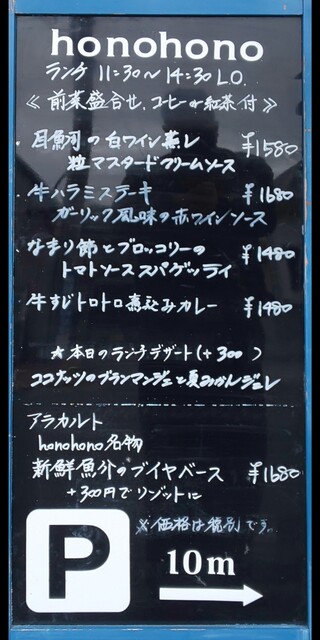 honohono
ランチ 11:30〜14:30 L.O.
≪ 前菜盛合せ、コーヒーか紅茶付 ≫
・ 目鯛の白ワイン蒸し ¥1580
粒マスタードクリームソース
・ 牛ハラミステーキ ¥1680
ガーリック風味の赤ワインソース
・ なまり節とブロッコリーの ¥1480
トマトソーススパゲッティ
・ 牛すじトロトロ煮込みカレー ¥1480
★ 本日のランチデザート(+300 )
ココナッツのブランマンジェと夏みかんジュレ
アラカルト
honohono名物
新鮮魚介のブイヤベース ¥1680
+300円でリゾットに
※ 価格は税別です。
P
10m